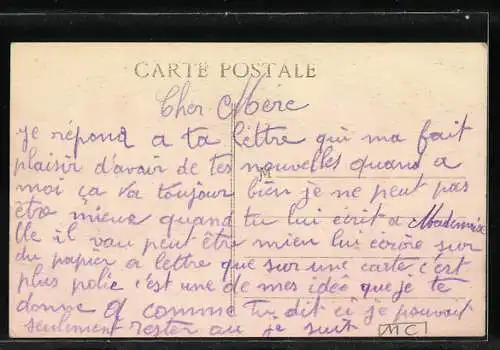 CARTE POSTALE
Cher Mère
je répond a ta lettre qui ma fait
plaisir d'avair de tes nouvelles quand a
moi ça va toujour bien je ne peut pas
être mieux quand tu lui écrit a Mademoise
lle il vau peut être mien lui écrire sur
du papier a lettre que sur une carte c'ert
plus polie c'est une de mes idé que je te
donne comme tu dit ci je pouvait
seulement rester au je suit
M
MC